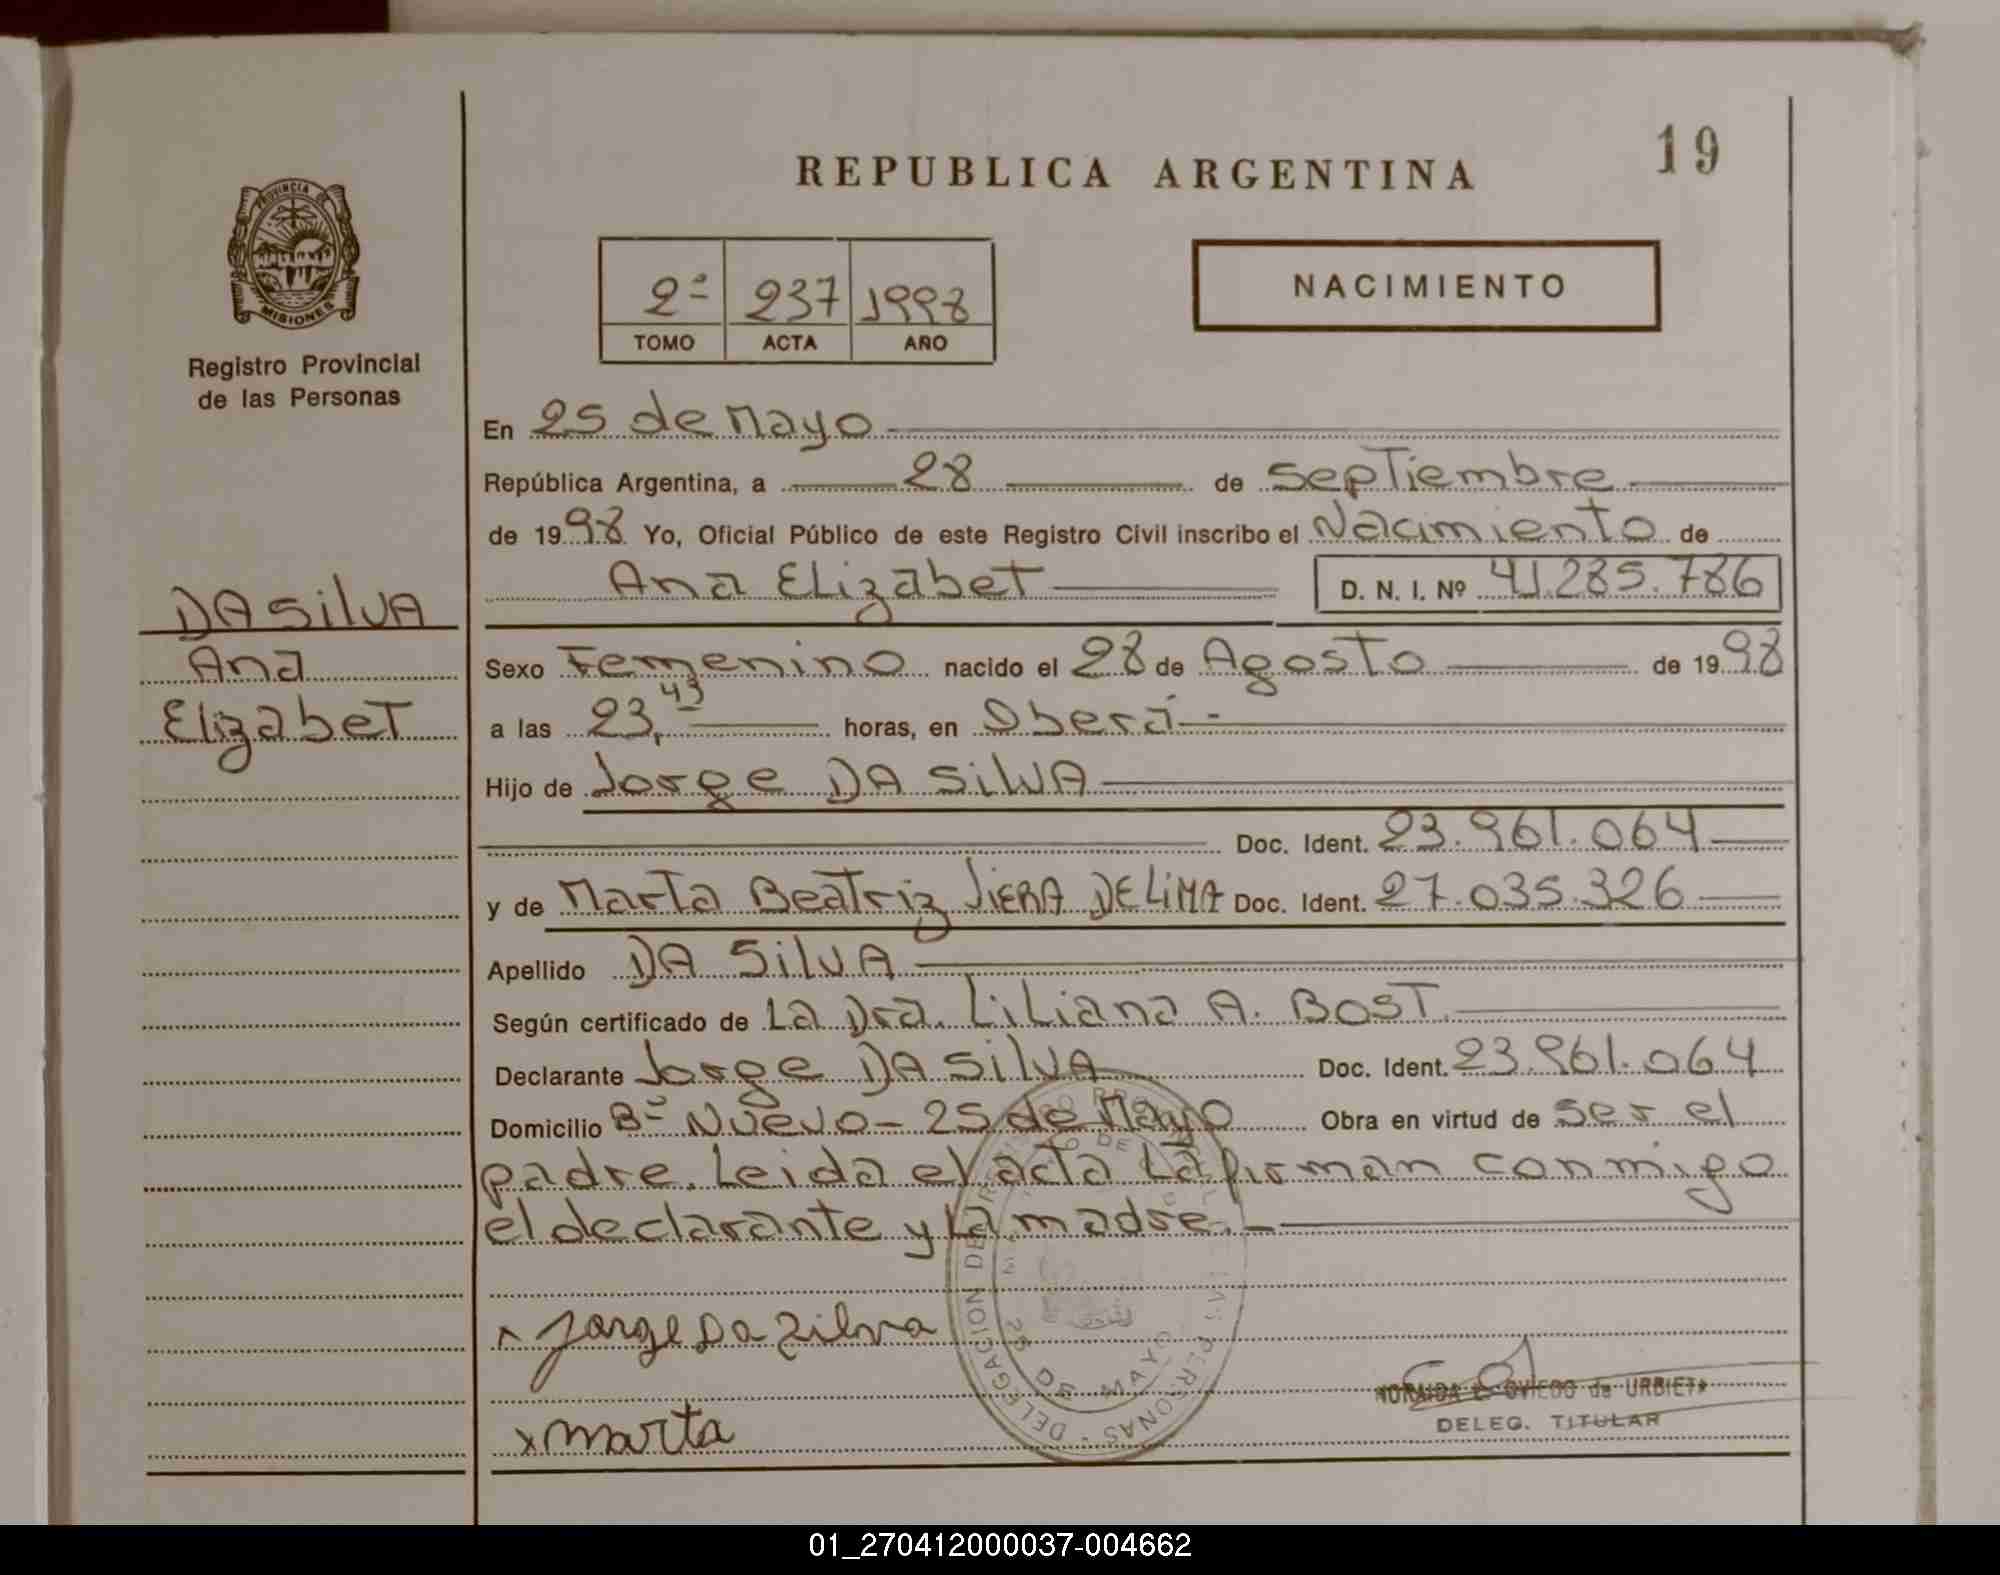 19
REPUBLICA ARGENTINA
PROVINCIA DE
MISIONES
Registro Provincial
de las Personas
2º 237 1998
TOMO ACTA AÑO
NACIMIENTO
En 25 de Mayo
República Argentina, a 28 de Septiembre
de 1998 Yo, Oficial Público de este Registro Civil inscribo el Nacimiento de
Ana Elizabet D. N. I. Nº 41.285.786
DA SilVA
Ana
Elizabet
Sexo Femenino nacido el 28 de Agosto de 1998
a las 23,43 horas, en Oberá
Hijo de Jorge DA SilVA
Doc. Ident. 23.961.064
y de Marta Beatriz VIERA DELIMA Doc. Ident. 27.035.326
Apellido DA SilVA
Según certificado de La Dra. Liliana A. BOST
Declarante Jorge DA SilVA Doc. Ident. 23.961.064
Domicilio Bº Nuevo - 25 de Mayo Obra en virtud de ser el
padre. Leida el acta La firman conmigo
el declarante y La madre.
x Jorge Da Zilva
x Marta
DELEGACION DE PERSONAS
25 DE MAYO
OVIEDO de URBIETA
DELEG. TITULAR
01_270412000037-004662